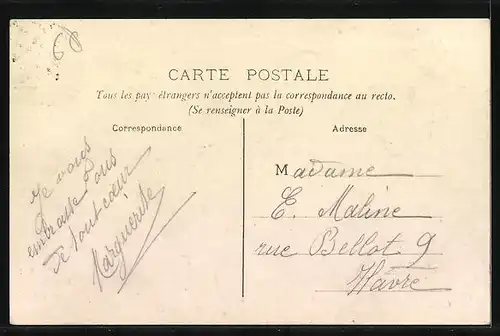 68
CARTE POSTALE
Tous les pays étrangers n'acceptent pas la correspondance au recto.
(Se renseigner à la Poste)
Correspondance
Je vous
embrasse tous
de tout cœur
Marguerite
Adresse
Madame
E. Maline
rue Bellot 9
Havre